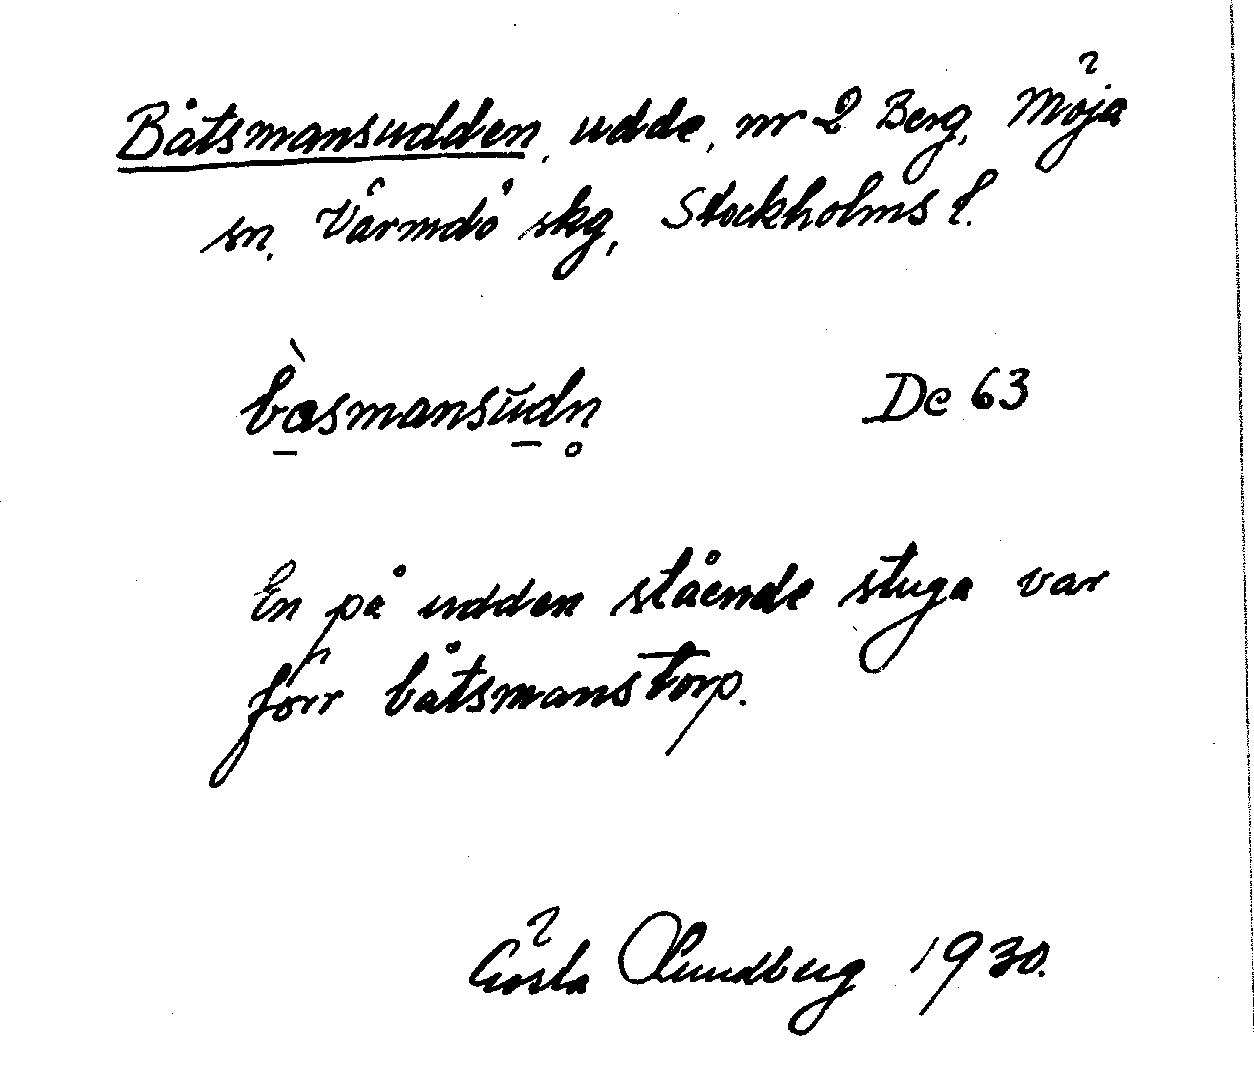 Båtsmansudden, udde, nr 2 Berg, Möja
sn, Värmdö skg, Stockholms l.
bàsmansŭdn̥
De 63
En på udden stående stuga var
förr båtsmanstorp.
Gösta Lundberg 1930.